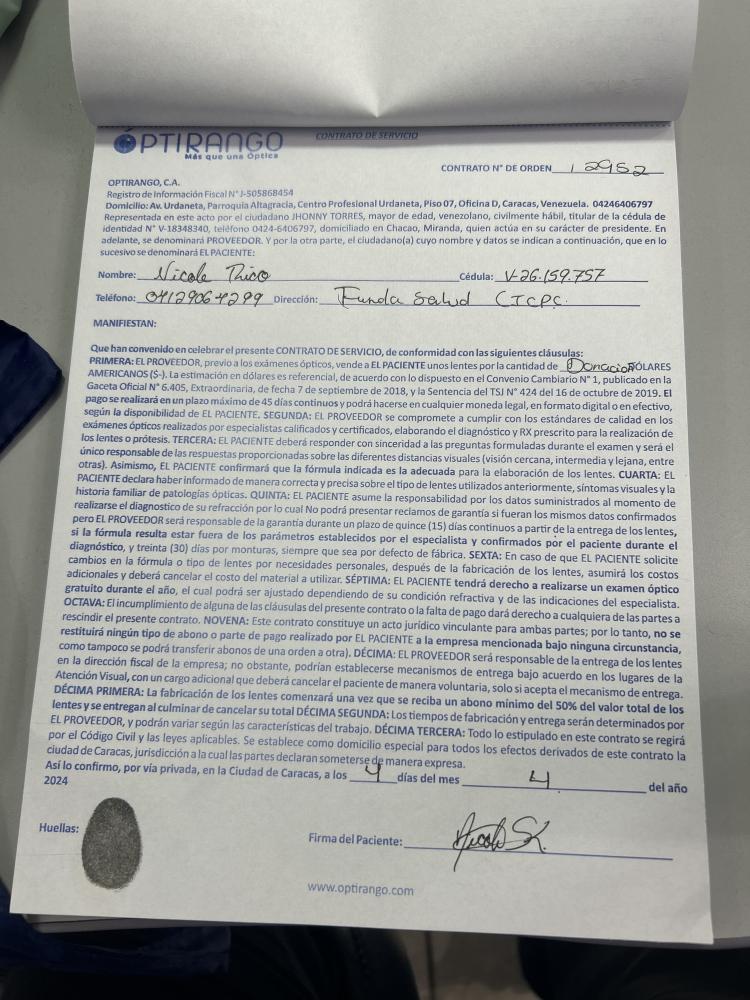 ÓPTIRANGO
Más que una Óptica
CONTRATO DE SERVICIO
CONTRATO N° DE ORDEN 12952
OPTIRANGO, C.A.
Registro de Información Fiscal N° J-505868454
Domicilio: Av. Urdaneta, Parroquia Altagracia, Centro Profesional Urdaneta, Piso 07, Oficina D, Caracas, Venezuela. 04246406797
Representada en este acto por el ciudadano JHONNY TORRES, mayor de edad, venezolano, civilmente hábil, titular de la cédula de
identidad N° V-18348340, teléfono 0424-6406797, domiciliado en Chacao, Miranda, quien actúa en su carácter de presidente. En
adelante, se denominará PROVEEDOR. Y por la otra parte, el ciudadano(a) cuyo nombre y datos se indican a continuación, que en lo
sucesivo se denominará EL PACIENTE:
Nombre: Nicole Cédula: V-26.159.757
Teléfono: 04129064299 Dirección: Funda Salud CTCPC.
MANIFIESTAN:
Que han convenido en celebrar el presente CONTRATO DE SERVICIO, de conformidad con las siguientes cláusulas:
PRIMERA: EL PROVEEDOR, previo a los exámenes ópticos, vende a EL PACIENTE unos lentes por la cantidad de Donación DÓLARES
AMERICANOS ($-). La estimación en dólares es referencial, de acuerdo con lo dispuesto en el Convenio Cambiario N° 1, publicado en la
Gaceta Oficial N° 6.405, Extraordinaria, de fecha 7 de septiembre de 2018, y la Sentencia del TSJ N° 424 del 16 de octubre de 2019. El
pago se realizará en un plazo máximo de 45 días continuos y podrá hacerse en cualquier moneda legal, en formato digital o en efectivo,
según la disponibilidad de EL PACIENTE. SEGUNDA: EL PROVEEDOR se compromete a cumplir con los estándares de calidad en los
exámenes ópticos realizados por especialistas calificados y certificados, elaborando el diagnóstico y RX prescrito para la realización de
los lentes o prótesis. TERCERA: EL PACIENTE deberá responder con sinceridad a las preguntas formuladas durante el examen y será el
único responsable de las respuestas proporcionadas sobre las diferentes distancias visuales (visión cercana, intermedia y lejana, entre
otras). Asimismo, EL PACIENTE confirmará que la fórmula indicada es la adecuada para la elaboración de los lentes. CUARTA: EL
PACIENTE declara haber informado de manera correcta y precisa sobre el tipo de lentes utilizados anteriormente, síntomas visuales y la
historia familiar de patologías ópticas. QUINTA: EL PACIENTE asume la responsabilidad por los datos suministrados al momento de
realizarse el diagnostico de su refracción por lo cual No podrá presentar reclamos de garantía si fueran los mismos datos confirmados
pero EL PROVEEDOR será responsable de la garantía durante un plazo de quince (15) días continuos a partir de la entrega de los lentes,
si la fórmula resulta estar fuera de los parámetros establecidos por el especialista y confirmados por el paciente durante el
diagnóstico, y treinta (30) días por monturas, siempre que sea por defecto de fábrica. SEXTA: En caso de que EL PACIENTE solicite
cambios en la fórmula o tipo de lentes por necesidades personales, después de la fabricación de los lentes, asumirá los costos
adicionales y deberá cancelar el costo del material a utilizar. SÉPTIMA: EL PACIENTE tendrá derecho a realizarse un examen óptico
gratuito durante el año, el cual podrá ser ajustado dependiendo de su condición refractiva y de las indicaciones del especialista.
OCTAVA: El incumplimiento de alguna de las cláusulas del presente contrato o la falta de pago dará derecho a cualquiera de las partes a
rescindir el presente contrato. NOVENA: Este contrato constituye un acto jurídico vinculante para ambas partes; por lo tanto, no se
restituirá ningún tipo de abono o parte de pago realizado por EL PACIENTE a la empresa mencionada bajo ninguna circunstancia,
como tampoco se podrá transferir abonos de una orden a otra). DÉCIMA: EL PROVEEDOR será responsable de la entrega de los lentes
en la dirección fiscal de la empresa; no obstante, podrían establecerse mecanismos de entrega bajo acuerdo en los lugares de la
Atención Visual, con un cargo adicional que deberá cancelar el paciente de manera voluntaria, solo si acepta el mecanismo de entrega.
DÉCIMA PRIMERA: La fabricación de los lentes comenzará una vez que se reciba un abono mínimo del 50% del valor total de los
lentes y se entregan al culminar de cancelar su total DÉCIMA SEGUNDA: Los tiempos de fabricación y entrega serán determinados por
EL PROVEEDOR, y podrán variar según las características del trabajo. DÉCIMA TERCERA: Todo lo estipulado en este contrato se regirá
por el Código Civil y las leyes aplicables. Se establece como domicilio especial para todos los efectos derivados de este contrato la
ciudad de Caracas, jurisdicción a la cual las partes declaran someterse de manera expresa.
Así lo confirmo, por vía privada, en la Ciudad de Caracas, a los 4 días del mes 4 del año
2024
Huellas:
Firma del Paciente:
www.optirango.com